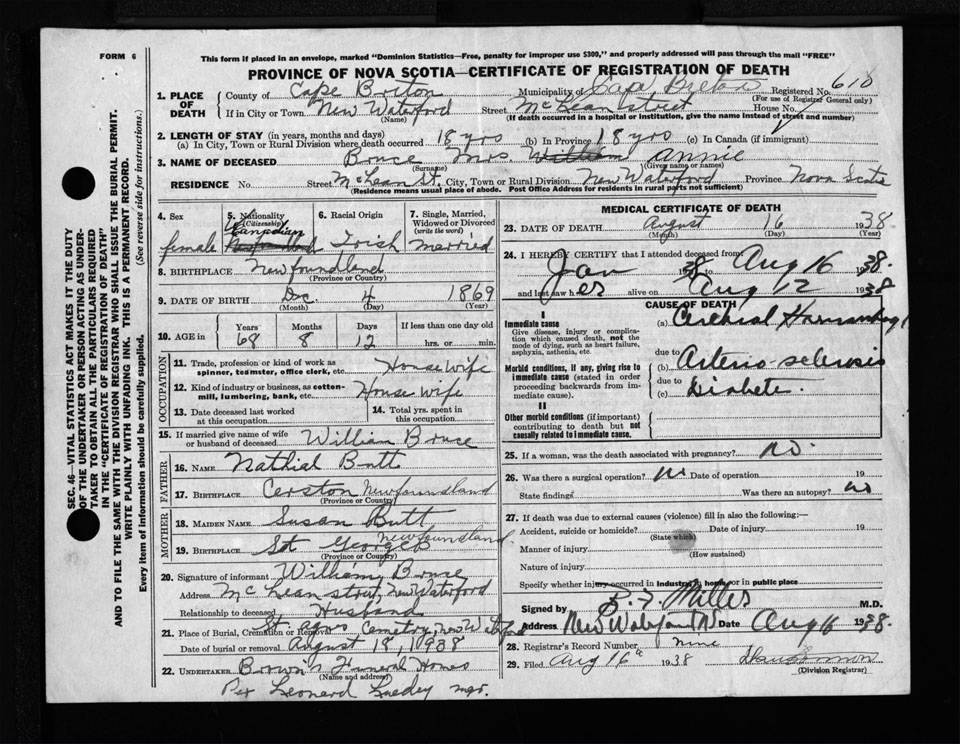 FORM 6
This form if placed in an envelope, marked "Dominion Statistics—Free, penalty for improper use $300," and properly addressed will pass through the mail "FREE"
PROVINCE OF NOVA SCOTIA—CERTIFICATE OF REGISTRATION OF DEATH
1. PLACE OF DEATH
County of Cape Briton Municipality of Cape Breton Registered No. 610
(For use of Registrar General only)
If in City or Town New Waterford Street McLean street House No.
(Name) (If death occurred in a hospital or institution, give the name instead of street and number)
2. LENGTH OF STAY (in years, months and days)
(a) In City, Town or Rural Division where death occurred 18 yrs (b) In Province 18 yrs (c) In Canada (if immigrant)
3. NAME OF DECEASED Bruce Mrs. William Annie
(Surname) (Given name or names)
RESIDENCE No. Street McLean St. City, Town or Rural Division New Waterford Province Nova Scotia
(Residence means usual place of abode. Post Office Address for residents in rural parts not sufficient)
4. Sex female
5. Nationality (Citizenship) Canadian
6. Racial Origin Irish
7. Single, Married, Widowed or Divorced (write the word) married
8. BIRTHPLACE Newfoundland
(Province or Country)
9. DATE OF BIRTH Dec 4 1869
(Month) (Day) (Year)
10. AGE in Years 68 Months 8 Days 12 If less than one day old hrs. or min.
OCCUPATION
11. Trade, profession or kind of work as spinner, teamster, office clerk, etc. House wife
12. Kind of industry or business, as cotton-mill, lumbering, bank, etc. House wife
13. Date deceased last worked at this occupation
14. Total yrs. spent in this occupation
15. If married give name of wife or husband of deceased William Bruce
FATHER
16. NAME Nathial Butt
17. BIRTHPLACE Newfoundland
(Province or Country)
MOTHER
18. MAIDEN NAME Susan Butt
19. BIRTHPLACE St Georges Newfoundland
(Province or Country)
20. Signature of informant William Bruce
Address McLean street, New Waterford
Relationship to deceased Husband
21. Place of Burial, Cremation or Removal St. Agnes Cemetry, New Waterford
Date of burial or removal August 18, 1938
22. UNDERTAKER Brown's Funeral Homes
(Name and address)
Per Leonard mgr.
MEDICAL CERTIFICATE OF DEATH
23. DATE OF DEATH August 16 1938
(Month) (Day) (Year)
24. I HEREBY CERTIFY that I attended deceased from
Jan 1938 to Aug 16 1938.
and last saw her alive on Aug 12 1938
CAUSE OF DEATH
I
Immediate cause
Give disease, injury or complication which caused death, not the mode of dying, such as heart failure, asphyxia, asthenia, etc.
(a) Cerebral
Morbid conditions, if any, giving rise to immediate cause (stated in order proceeding backwards from immediate cause).
due to
(b) Arterio-sclerosis
due to
(c) Diabete.
II
Other morbid conditions (if important) contributing to death but not causally related to immediate cause.
25. If a woman, was the death associated with pregnancy? no.
26. Was there a surgical operation? no Date of operation 19
State findings Was there an autopsy? no
27. If death was due to external causes (violence) fill in also the following:—
Accident, suicide or homicide? Date of injury 19
(State which)
Manner of injury
(How sustained)
Nature of injury
Specify whether injury occurred in Industry, in home, or in public place
Signed by Miller M.D.
Address New Waterford Date Aug 16 1938.
28. Registrar's Record Number nine
29. Filed Aug 16 1938
(Division Registrar)
SEC. 46—VITAL STATISTICS ACT MAKES IT THE DUTY
OF THE UNDERTAKER OR PERSON ACTING AS UNDER-
TAKER TO OBTAIN ALL THE PARTICULARS REQUIRED
IN THE "CERTIFICATE OF REGISTRATION OF DEATH"
AND TO FILE THE SAME WITH THE DIVISION REGISTRAR WHO SHALL ISSUE THE BURIAL PERMIT.
WRITE PLAINLY WITH UNFADING INK. THIS IS A PERMANENT RECORD.
Every item of information should be carefully supplied. (See reverse side for instructions.)